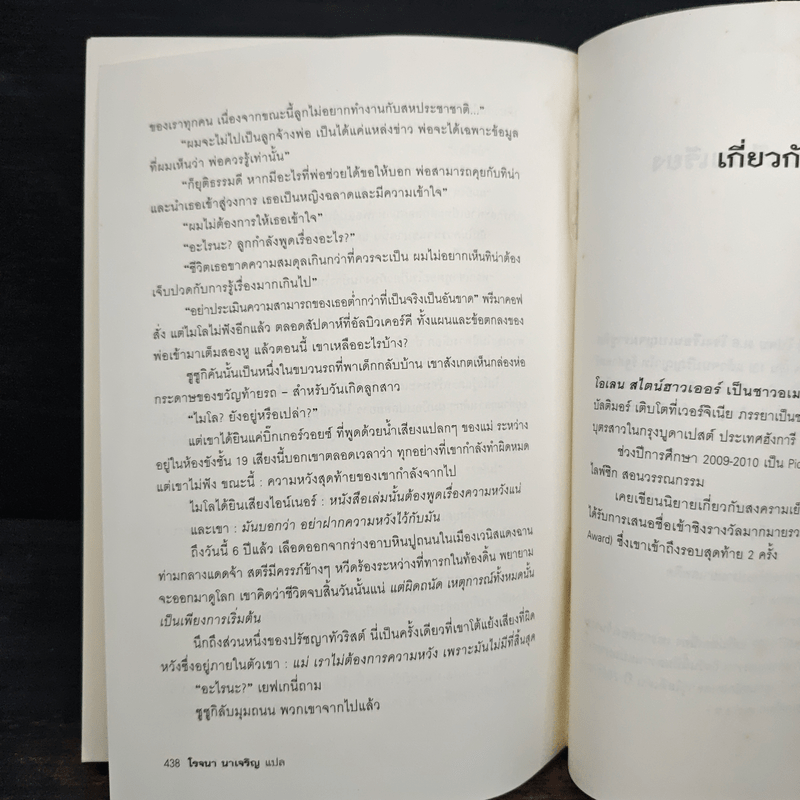 ของเราทุกคน เนื่องจากขณะนี้ลูกไม่อยากทำงานกับสหประชาชาติ..."
"ผมจะไม่ไปเป็นลูกจ้างพ่อ เป็นได้แค่แหล่งข่าว พ่อจะได้เฉพาะข้อมูล
ที่ผมเห็นว่า พ่อควรรู้เท่านั้น"
"ก็ยุติธรรมดี หากมีอะไรที่พ่อช่วยได้ขอให้บอก พ่อสามารถคุยกับทีน่า
และนำเธอเข้าสู่วงการ เธอเป็นหญิงฉลาดและมีความเข้าใจ"
"ผมไม่ต้องการให้เธอเข้าใจ"
"อะไรนะ? ลูกกำลังพูดเรื่องอะไร?"
"ชีวิตเธอขาดความสมดุลเกินกว่าที่ควรจะเป็น ผมไม่อยากเห็นทีน่าต้อง
เจ็บปวดกับการรู้เรื่องมากเกินไป"
"อย่าประเมินความสามารถของเธอต่ำกว่าที่เป็นจริงเป็นอันขาด" พรีมาคอฟ
สั่ง แต่ไมโลไม่ฟังอีกแล้ว ตลอดสัปดาห์ที่อัลบิวเคอร์คี ทั้งแผนและข้อตกลงของ
พ่อเข้ามาเต็มสองหู แล้วตอนนี้ เขาเหลืออะไรบ้าง?
ซูซูกิคันนั้นเป็นหนึ่งในขบวนรถที่พาเด็กกลับบ้าน เขาสังเกตเห็นกล่องห่อ
กระดาษของขวัญท้ายรถ – สำหรับวันเกิดลูกสาว
"ไมโล? ยังอยู่หรือเปล่า?"
แต่เขาได้ยินแค่บิ๊กเกอร์วอยซ์ ที่พูดด้วยน้ำเสียงแปลกๆ ของแม่ ระหว่าง
อยู่ในห้องขังชั้น 19 เสียงนี้บอกเขาตลอดเวลาว่า ทุกอย่างที่เขากำลังทำผิดหมด
แต่เขาไม่ฟัง ขณะนี้ : ความหวังสุดท้ายของเขากำลังจากไป
ไมโลได้ยินเสียงไอน์เนอร์ : หนังสือเล่มนั้นต้องพูดเรื่องความหวังแน่
และเขา : มันบอกว่า อย่าฝากความหวังไว้กับมัน
ถึงวันนี้ 6 ปีแล้ว เลือดออกจากร่างอาบหินปูถนนในเมืองเวนิสแดงฉาน
ท่ามกลางแดดจ้า สตรีมีครรภ์ข้างๆ หวีดร้องระหว่างที่ทารกในท้องดิ้น พยายาม
จะออกมาดูโลก เขาคิดว่าชีวิตจบสิ้นวันนั้นแน่ แต่ผิดถนัด เหตุการณ์ทั้งหมดนั้น
เป็นเพียงการเริ่มต้น
นึกถึงส่วนหนึ่งของปรัชญาทัวริสต์ นี่เป็นครั้งเดียวที่เขาโต้แย้งเสียงที่ผิด
หวังซึ่งอยู่ภายในตัวเขา : แม่ เราไม่ต้องการความหวัง เพราะมันไม่มีที่สิ้นสุด
"อะไรนะ?" เยฟเกนี่ถาม
ซูซูกิลับมุมถนน พวกเขาจากไปแล้ว
438 โรจนา นาเจริญ แปล
เกี่ยวกั
โอเลน สไตน์ฮาวเออร์ เป็นชาวอเม
บัลติมอร์ เติบโตที่เวอร์จิเนีย ภรรยาเป็นช
บุตรสาวในกรุงบูดาเปสต์ ประเทศฮังการี
ช่วงปีการศึกษา 2009-2010 เป็น Pic
ไลพ์ซิก สอนวรรณกรรม
เคยเขียนนิยายเกี่ยวกับสงครามเย็
ได้รับการเสนอชื่อเข้าชิงรางวัลมากมายรว
Award) ซึ่งเขาเข้าถึงรอบสุดท้าย 2 ครั้ง